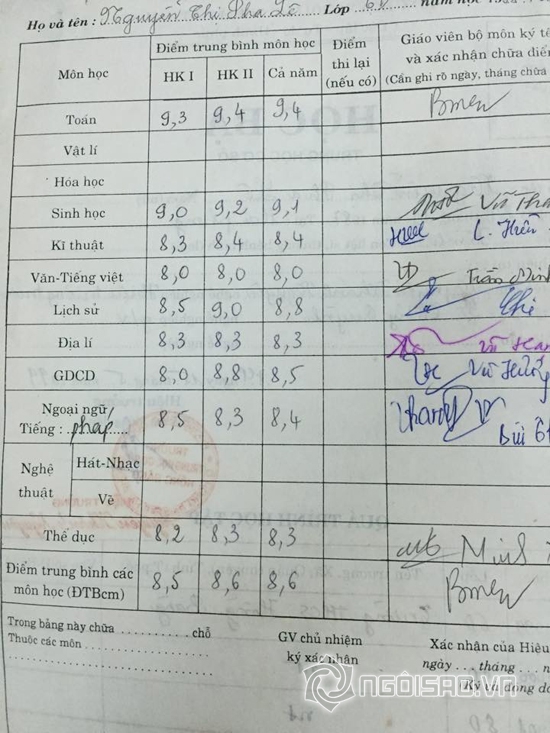 Họ và tên : Nguyễn Thị Pha Lê Lớp 6
Môn học Điểm trung bình môn học Điểm thi lại (nếu có) Giáo viên bộ môn ký tê
và xác nhận chữa điể
(Cần ghi rõ ngày, tháng chữa
HK I HK II Cả năm
Toán 9,3 9,4 9,4
Vật lí
Hóa học
Sinh học 9,0 9,2 9,1 Vũ
Kĩ thuật 8,3 8,4 8,4 L. Hiền
Văn-Tiếng việt 8,0 8,0 8,0 Trần Minh
Lịch sử 8,5 9,0 8,8
Địa lí 8,3 8,3 8,3 Vũ
GDCD 8,0 8,8 8,5 Vũ
Ngoại ngữ
Tiếng : pháp 8,5 8,3 8,4 Bùi
Nghệ thuật Hát-Nhạc
Vẽ
Thể dục 8,2 8,3 8,3 Minh
Điểm trung bình các
môn học (ĐTBcm) 8,5 8,6 8,6
Trong bảng này chữa ............ chỗ
Thuộc các môn ............
GV chủ nhiệm
ký xác nhận
Xác nhận của Hiệu
ngày . . . tháng . . . n
Ký và đóng dấ
NGÔISAO.VN